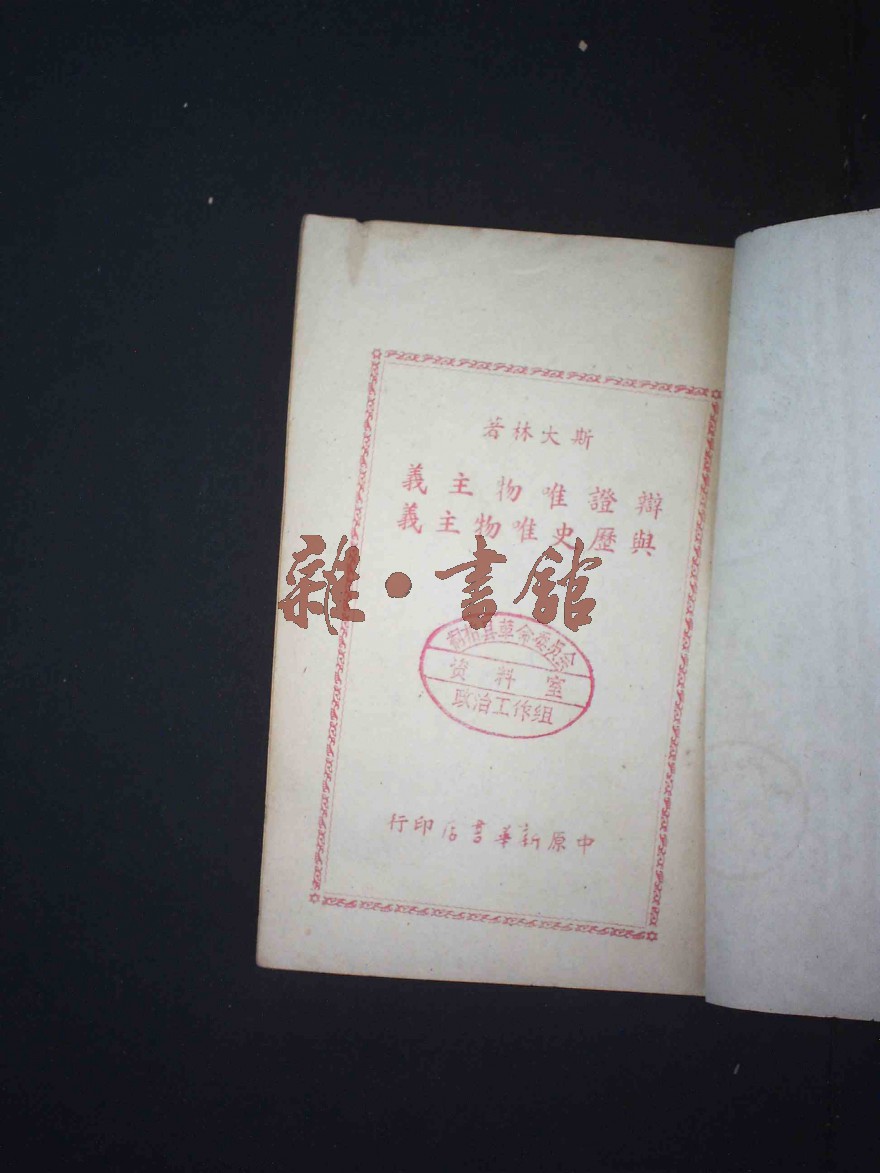 斯大林著
辯證唯物主義
與歷史唯物主義
雜·書館
县革命委员会
资料室
政治工作组
中原新華書店印行